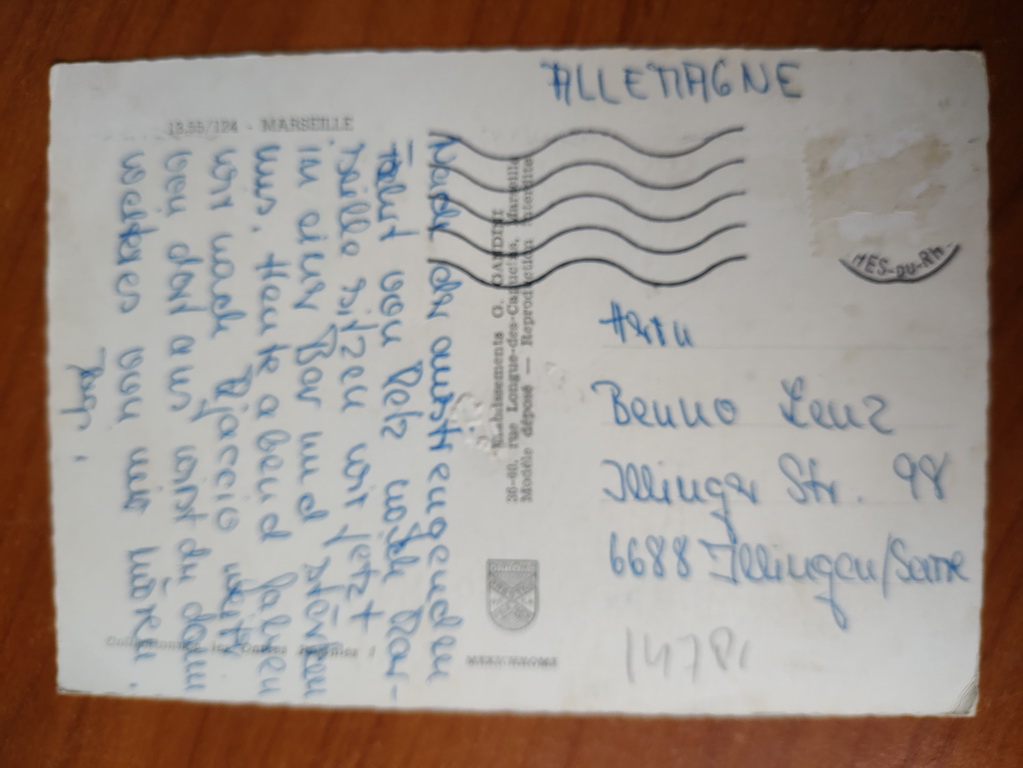 13.55/124 - MARSEILLE
Nach der anstrengenden
Fahrt von Metz nach Mar-
seille sitzen wir jetzt
in der Bar und stören
uns. Heute abend fahren
wir nach Ajaccio weiter
von dort aus wirst du dann
weiteres von mir hören.
Collectionnez les Cartes
Etablissements G. GANDINI
36-60, rue Longue-des-Capucins, Marseille
Modèle déposé — Reproduction interdite
MEXICHROME
ALLEMAGNE
HES-DU-RH.
Herrn
Benno Lenz
Illinger Str. 98
6688 Illingen/Saar
1478